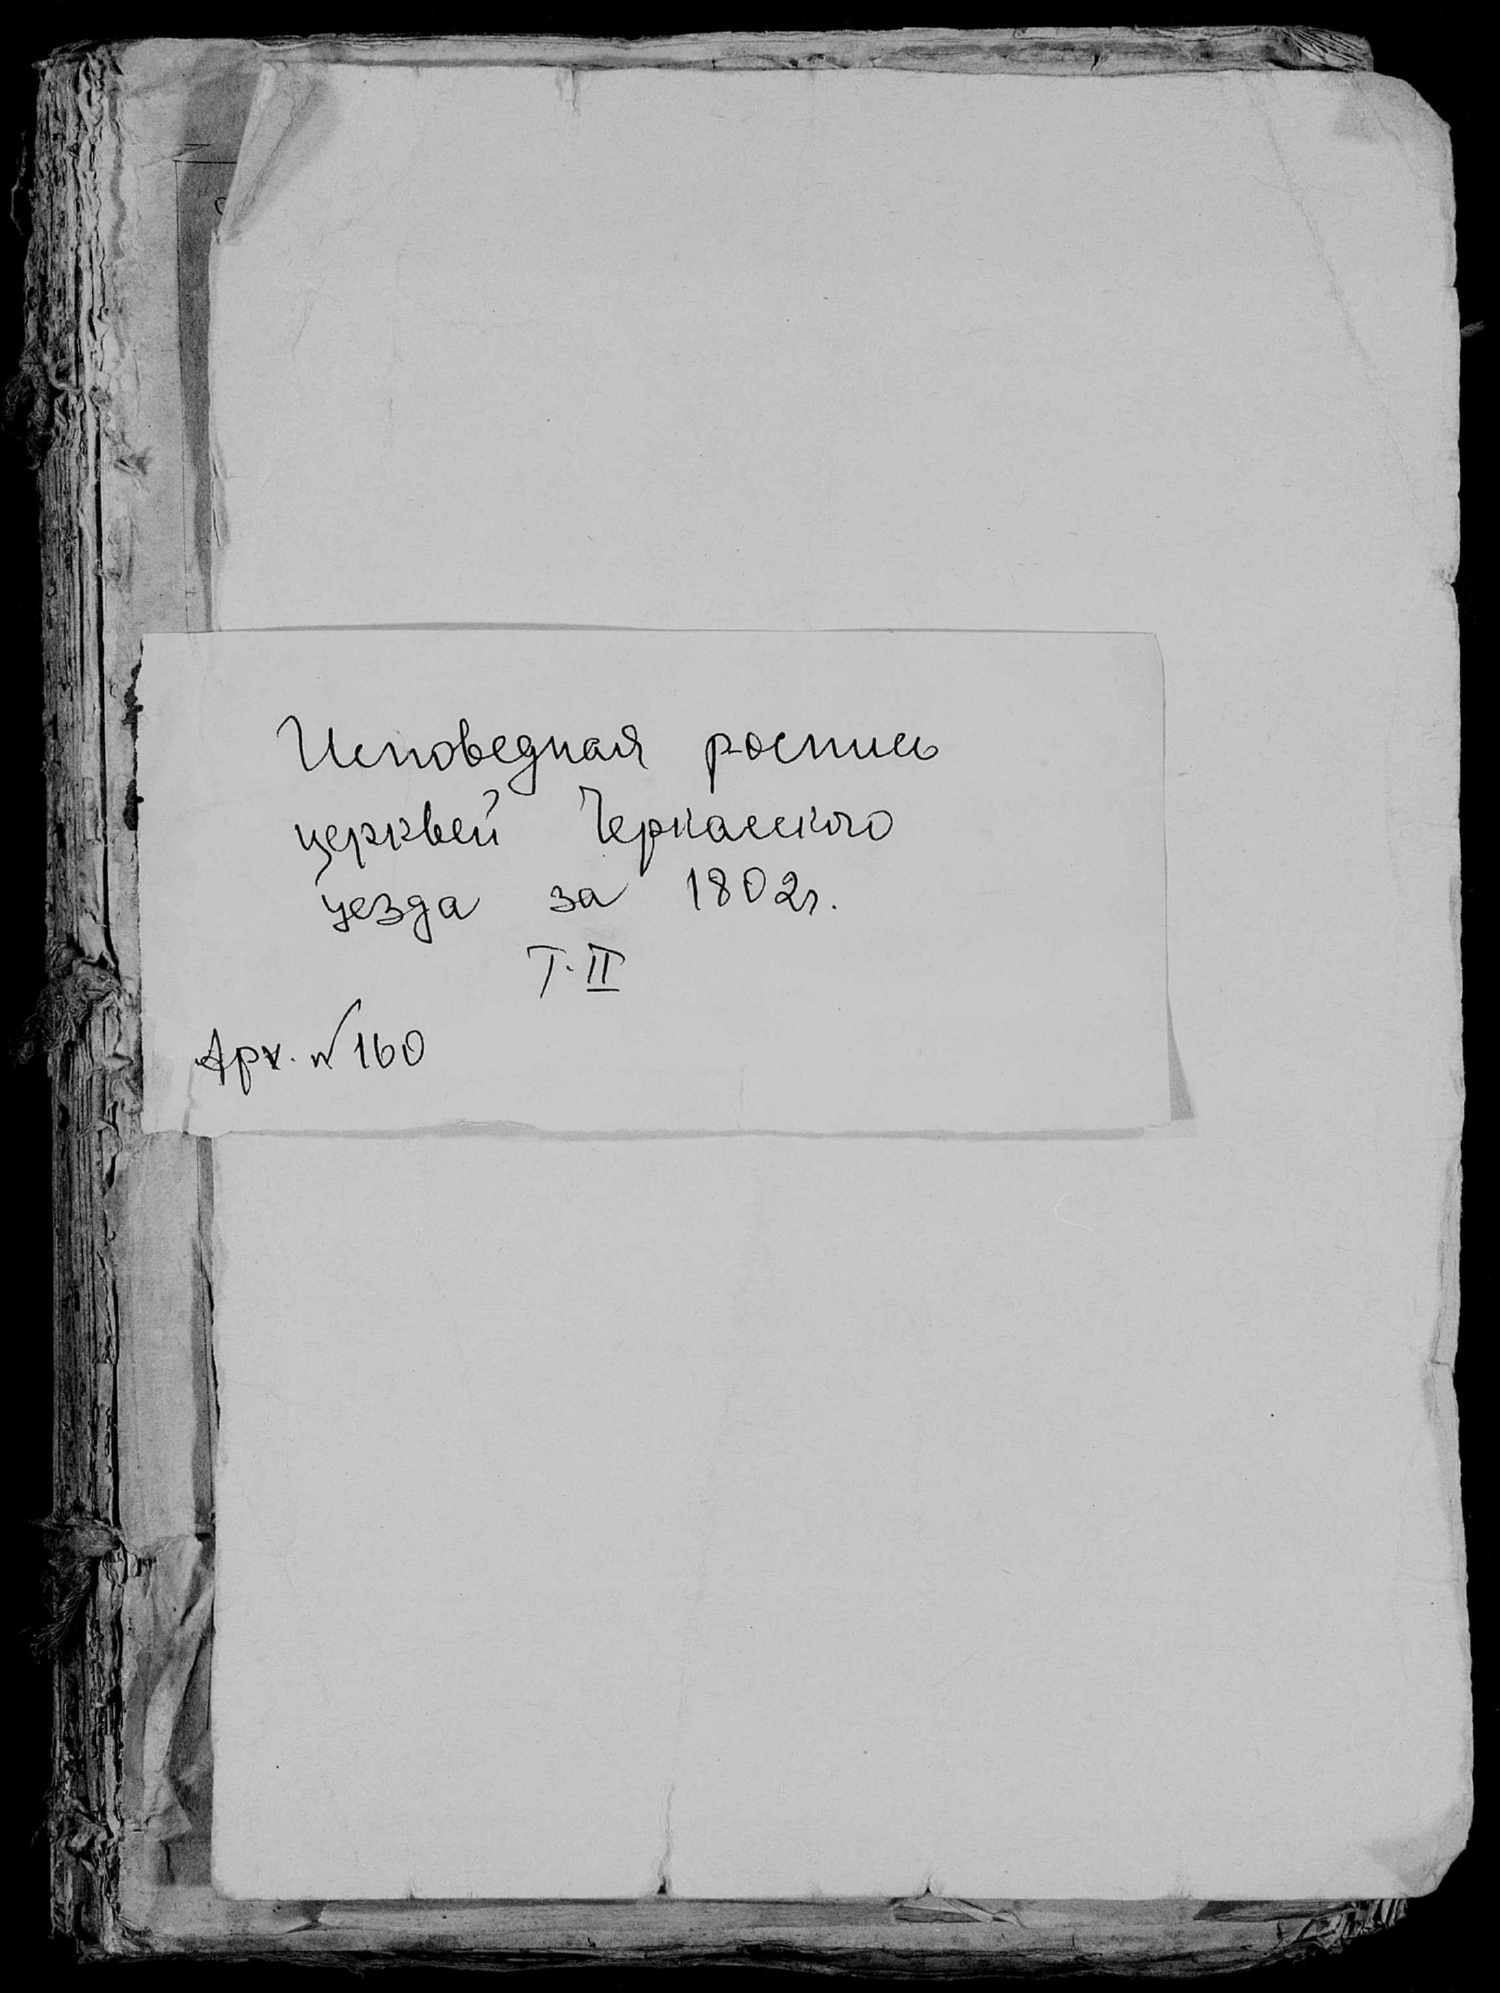 Исповедная роспись
церквей Черкасского
уезда за 1802г.
Т. II
Арх. №160